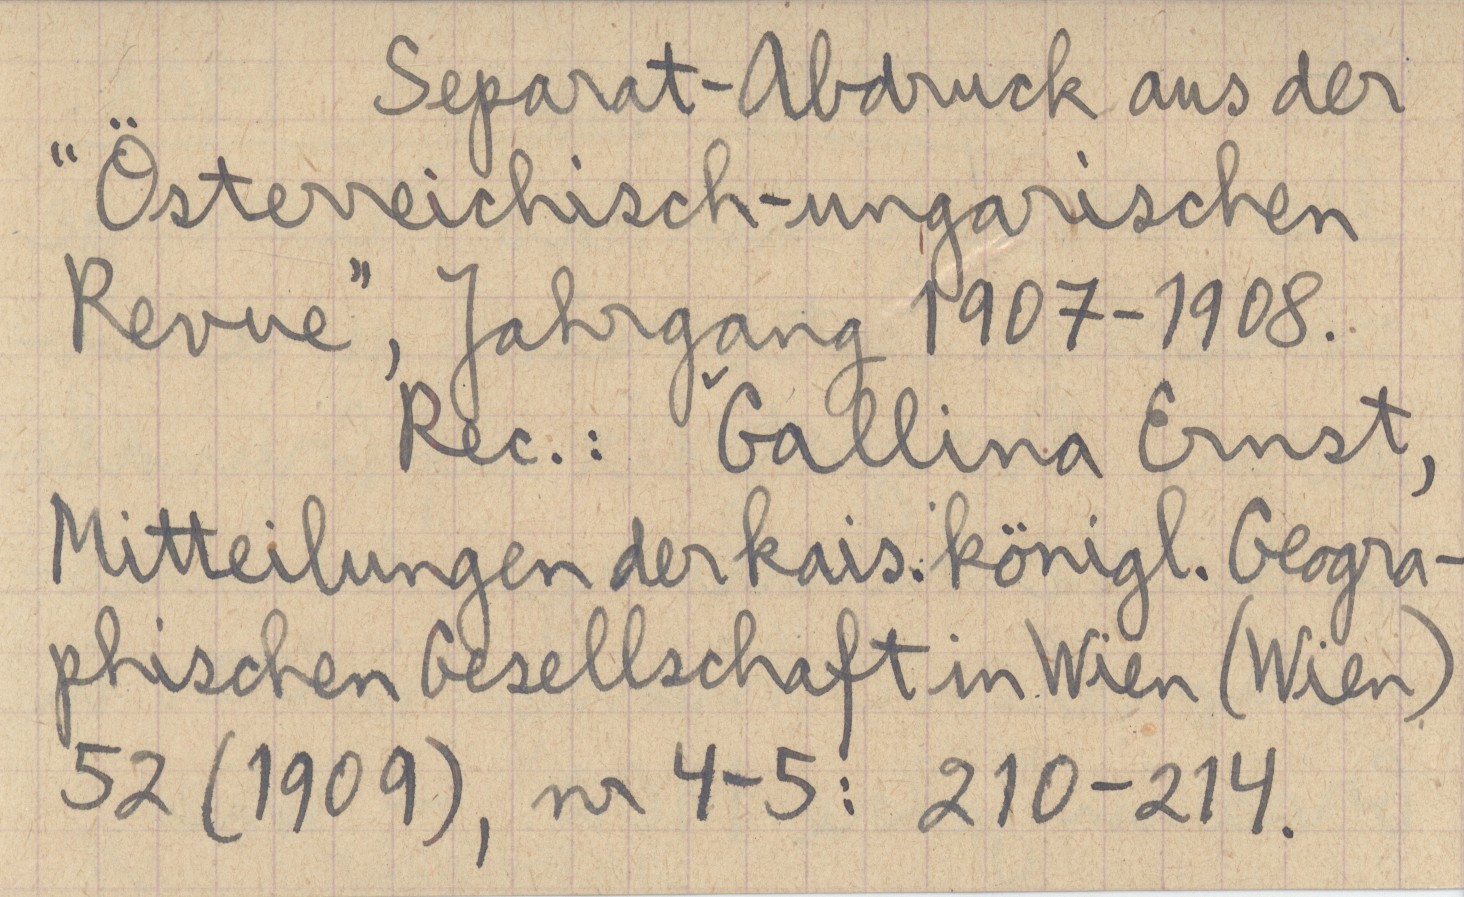 Separat-Abdruck aus der
“Österreichisch-ungarischen
Revue”, Jahrgang 1907-1908.
Rec.: Gallina Ernst,
Mitteilungen der kais. königl. Geogra-
phischen Gesellschaft in Wien (Wien)
52 (1909), nr 4-5: 210-214.